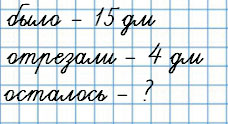 было – 15 дм
отрезали – 4 дм
осталось – ?